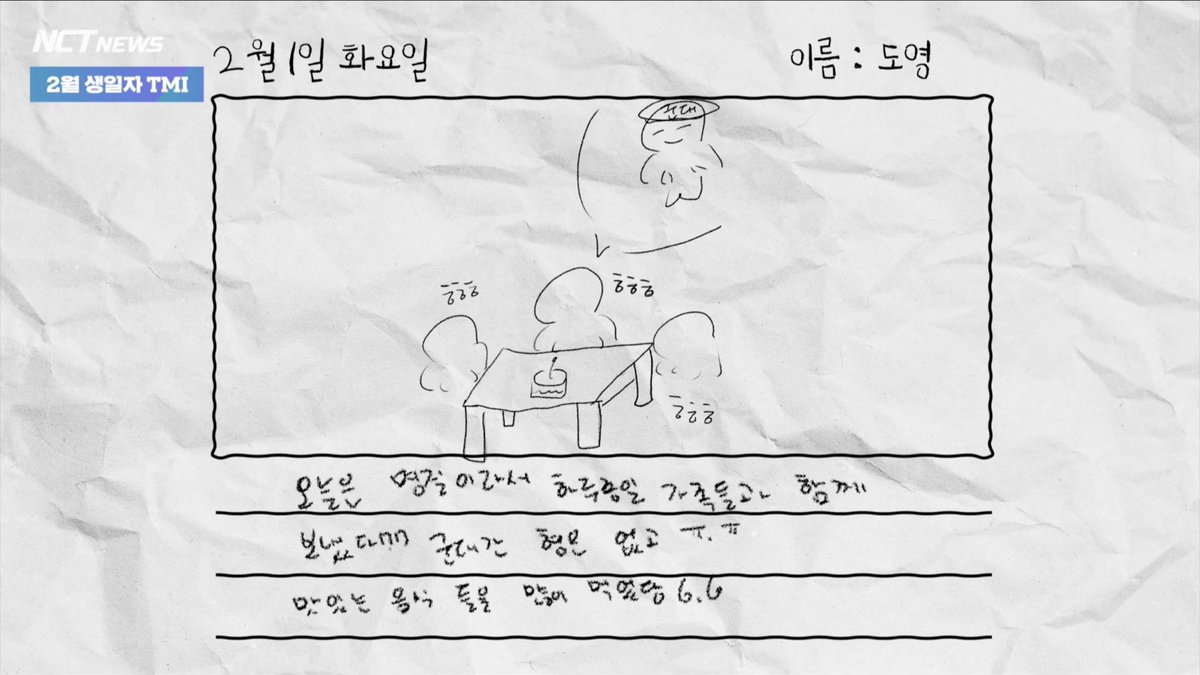 NCT NEWS
2월 생일자 TMI
2월 1일 화요일
이름 : 도영
군대
ㅎㅎㅎ
ㅎㅎㅎ
ㅎㅎㅎ
오늘은 명절이라서 하루종일 가족들과 함께
보냈다 군대간 형은 없고 ㅠ.ㅠ
맛있는 음식 들을 많이 먹었당 6.6